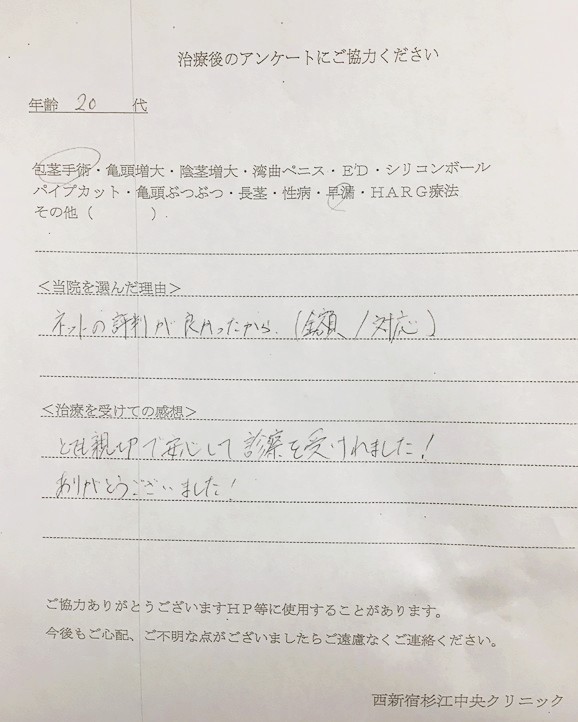 治療後のアンケートにご協力ください
年齢 20 代
包茎手術・亀頭増大・陰茎増大・湾曲ペニス・ED・シリコンボール
パイプカット・亀頭ぶつぶつ・長茎・性病・早漏・HARG療法
その他（ ）
＜当院を選んだ理由＞
ネットの評判が良かったから。(金額 / 対応)
＜治療を受けての感想＞
とても親切で安心して診察を受けれました!
ありがとうございました!
ご協力ありがとうございますHP等に使用することがあります。
今後もご心配、ご不明な点がございましたらご遠慮なくご連絡ください。
西新宿杉江中央クリニック